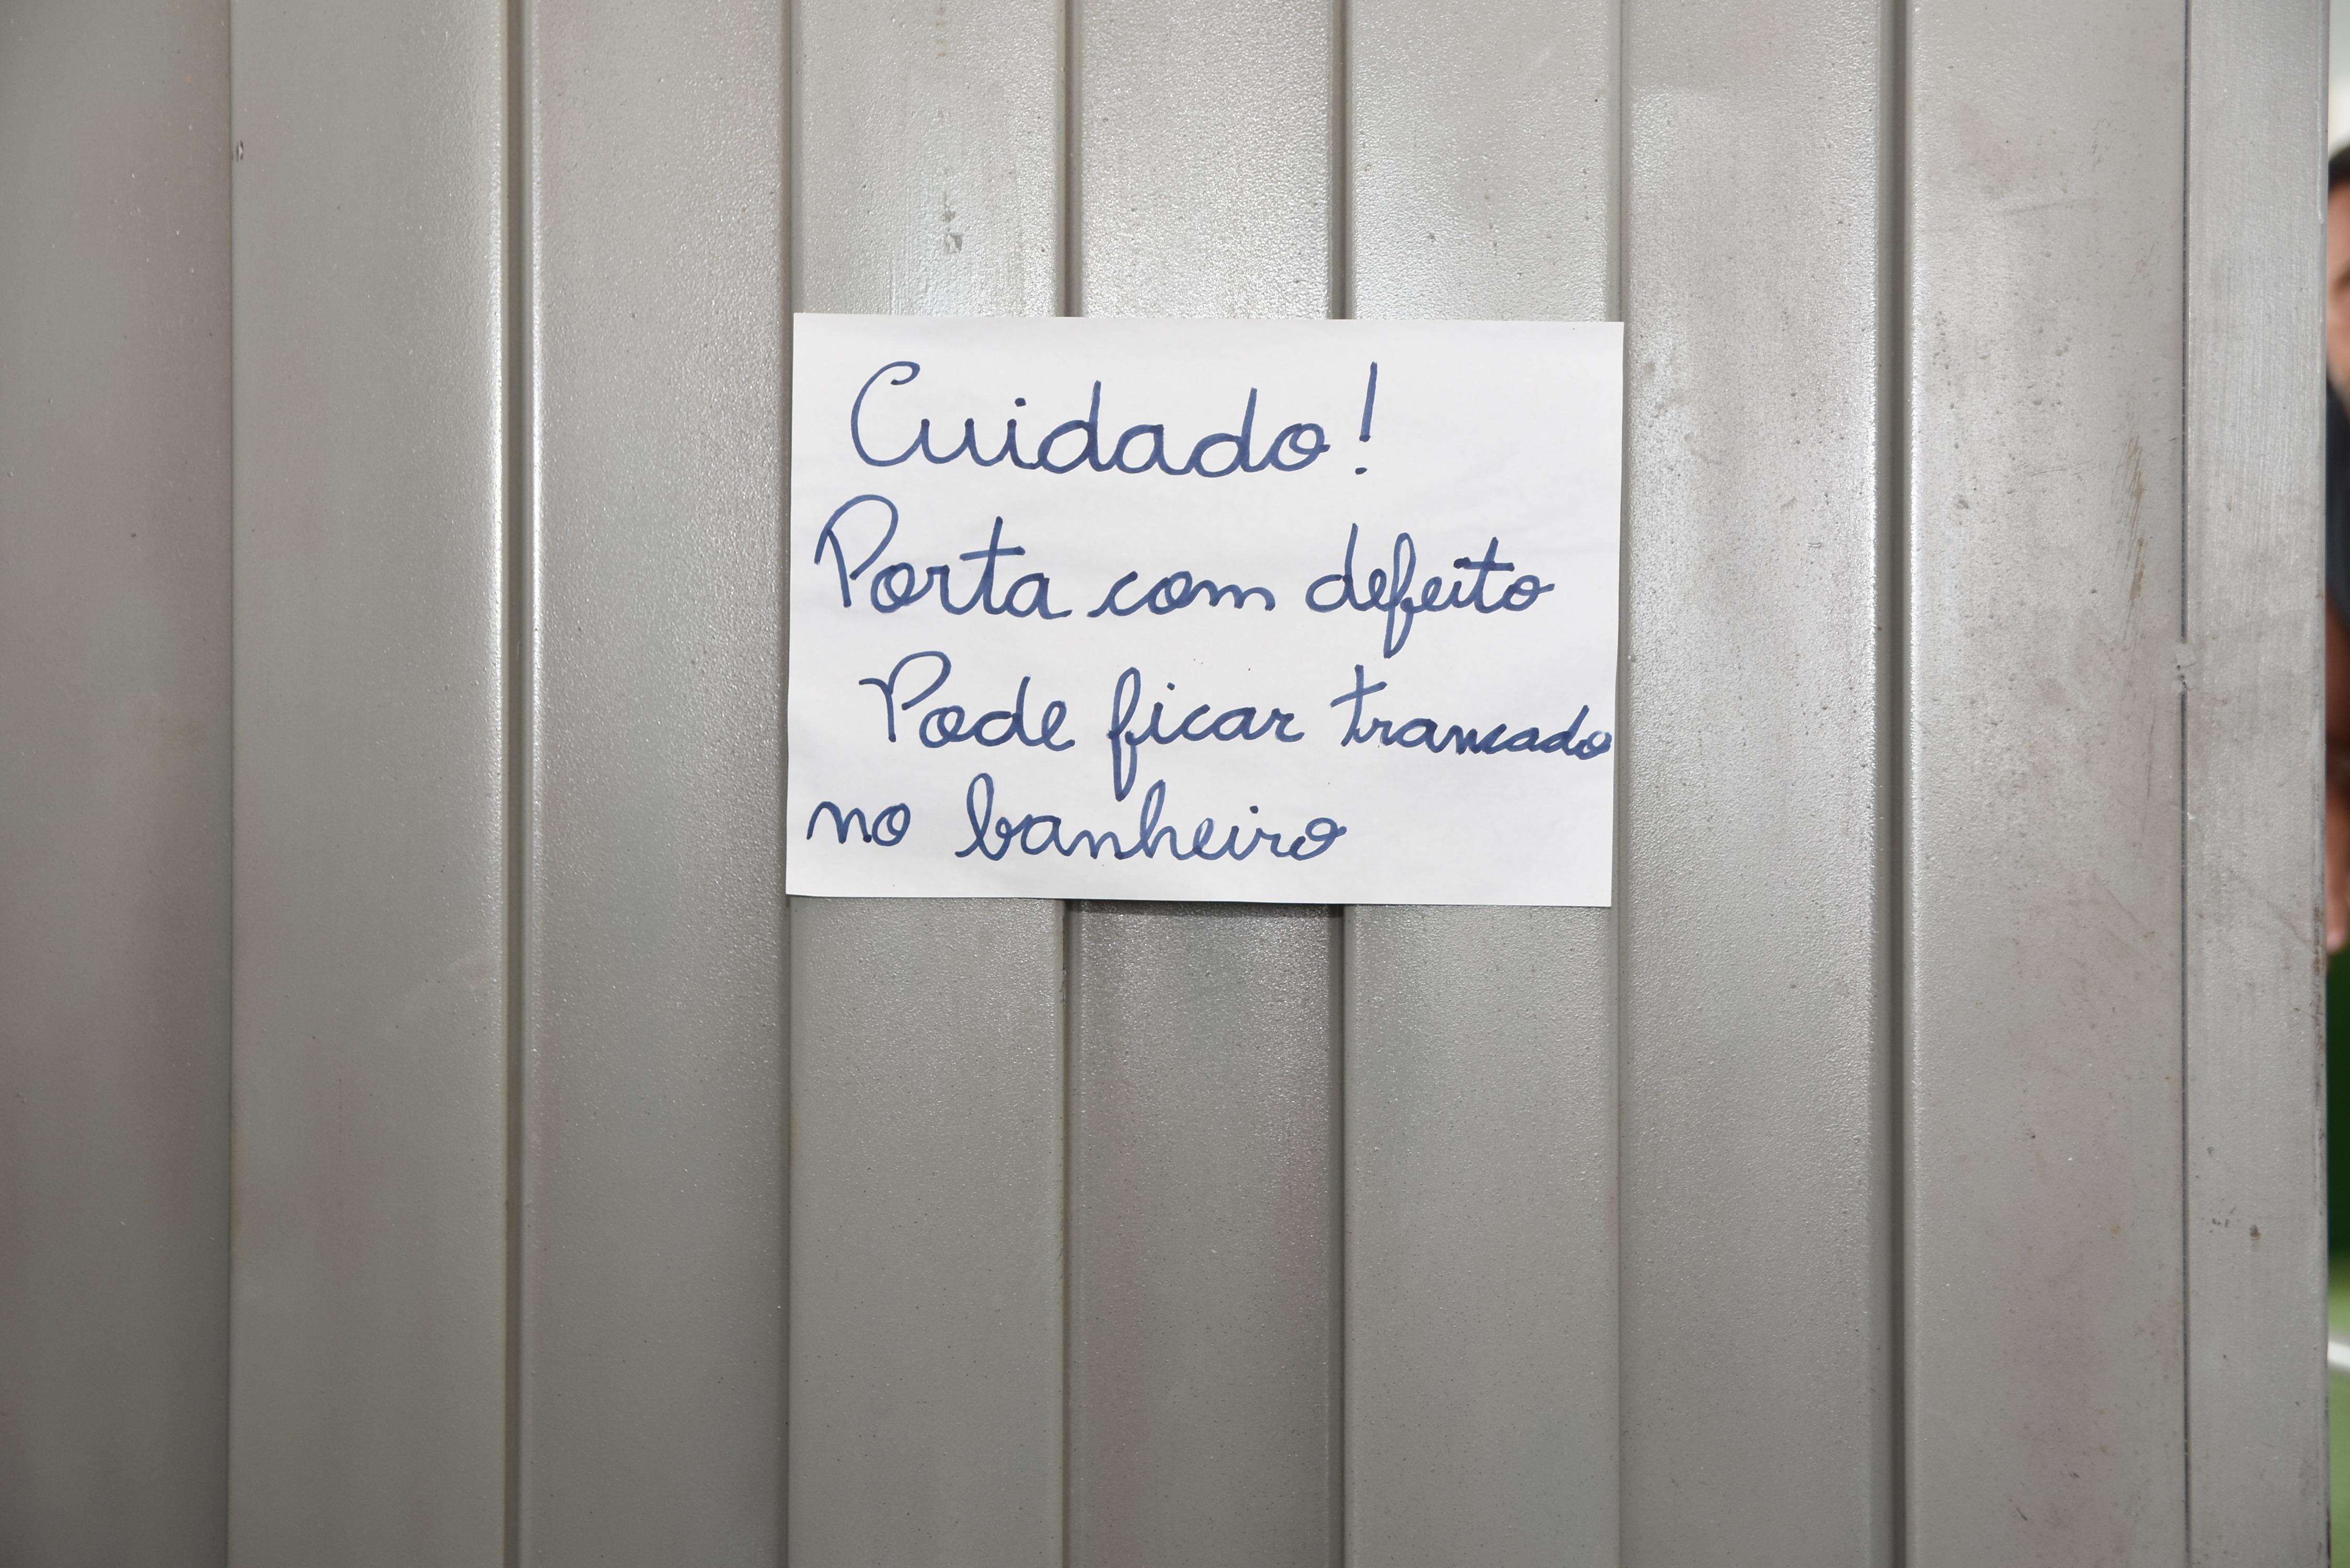 Cuidado!
Porta com defeito
Pode ficar trancado
no banheiro